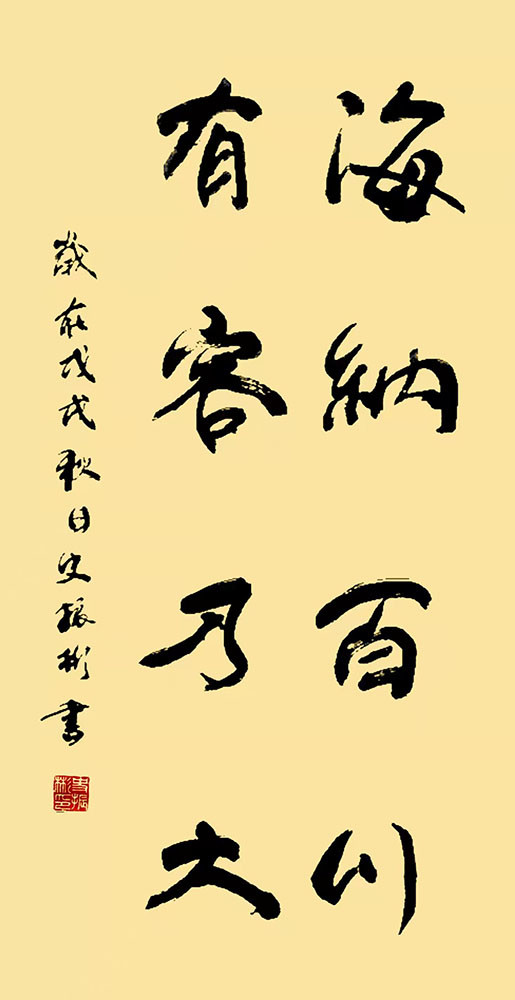 海納百川
有容乃大
歲在戊戌秋日史振彬書
史振彬印